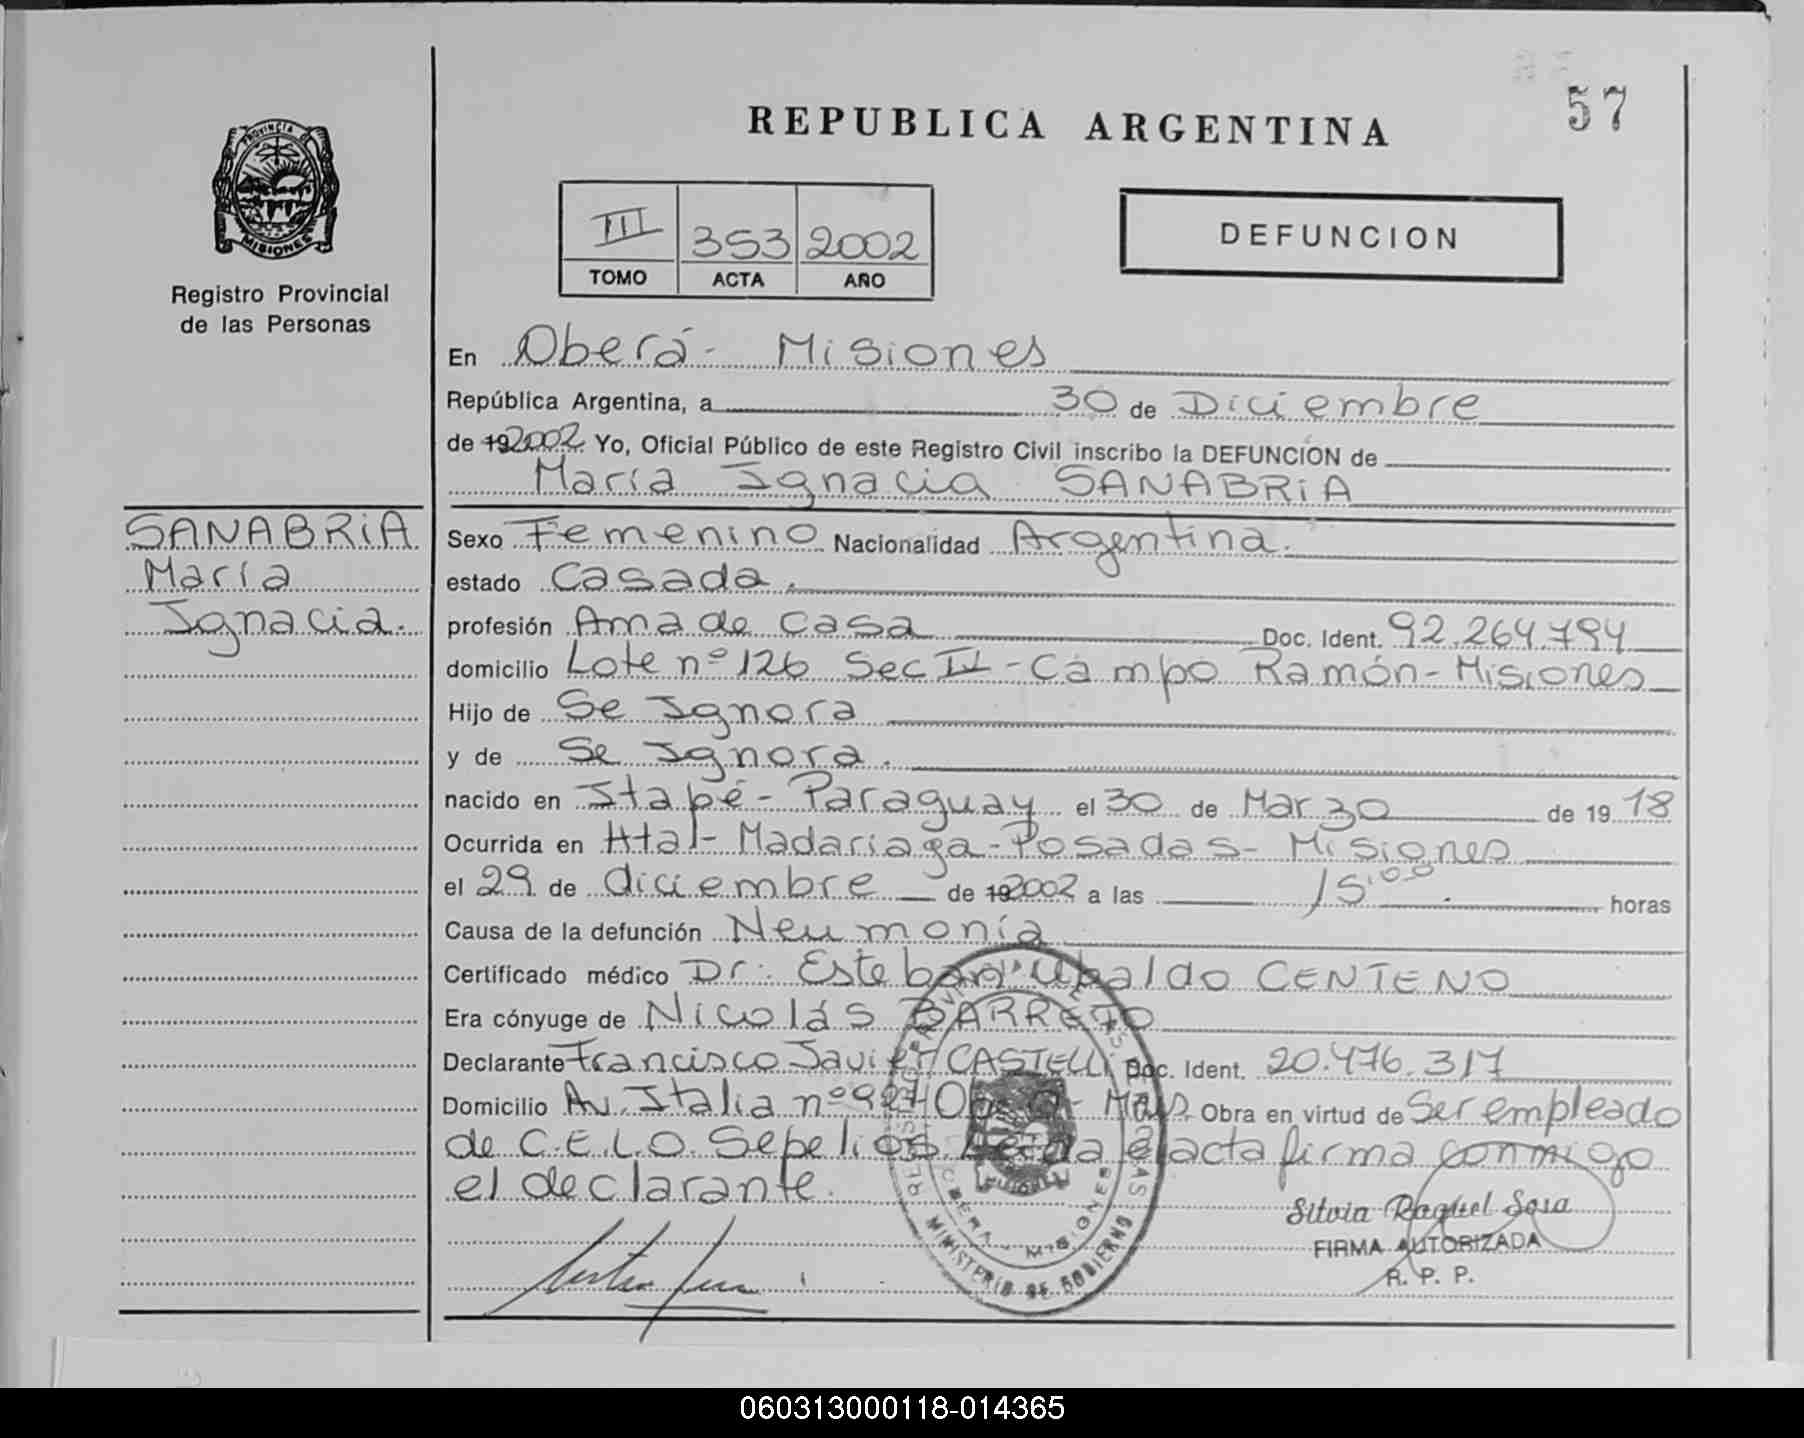 57
REPUBLICA ARGENTINA
PROVINCIA DE MISIONES
Registro Provincial
de las Personas
III 353 2002
TOMO ACTA AÑO
DEFUNCION
En Oberá - Misiones
República Argentina, a 30 de Diciembre
de 19 2002 Yo, Oficial Público de este Registro Civil inscribo la DEFUNCIÓN de
María Ignacia SANABRIA
SANABRIA
María
Ignacia.
Sexo Femenino Nacionalidad Argentina.
estado Casada.
profesión Ama de casa Doc. Ident. 92.264.794
domicilio Lote nº 126 Sec II - Campo Ramón - Misiones
Hijo de Se Ignora
y de Se Ignora.
nacido en Itapé - Paraguay el 30 de Marzo de 19 18
Ocurrida en Htal - Madariaga - Posadas - Misiones
el 29 de diciembre de 19 2002 a las 15:00 horas
Causa de la defunción Neumonía
Certificado médico Dr: Esteban Ubaldo CENTENO
Era cónyuge de Nicolás BARRETO
Declarante Francisco Javier CASTELLI Doc. Ident. 20.476.317
Domicilio Av. Italia nº Oberá - Mnes Obra en virtud de Ser empleado
de C.E.L.O. Sepelios. Leída el acta firma conmigo
el declarante.
Silvia Raquel Sosa
FIRMA AUTORIZADA
R. P. P.
OBERA - MISIONES
MINISTERIO DE GOBIERNO
060313000118-014365